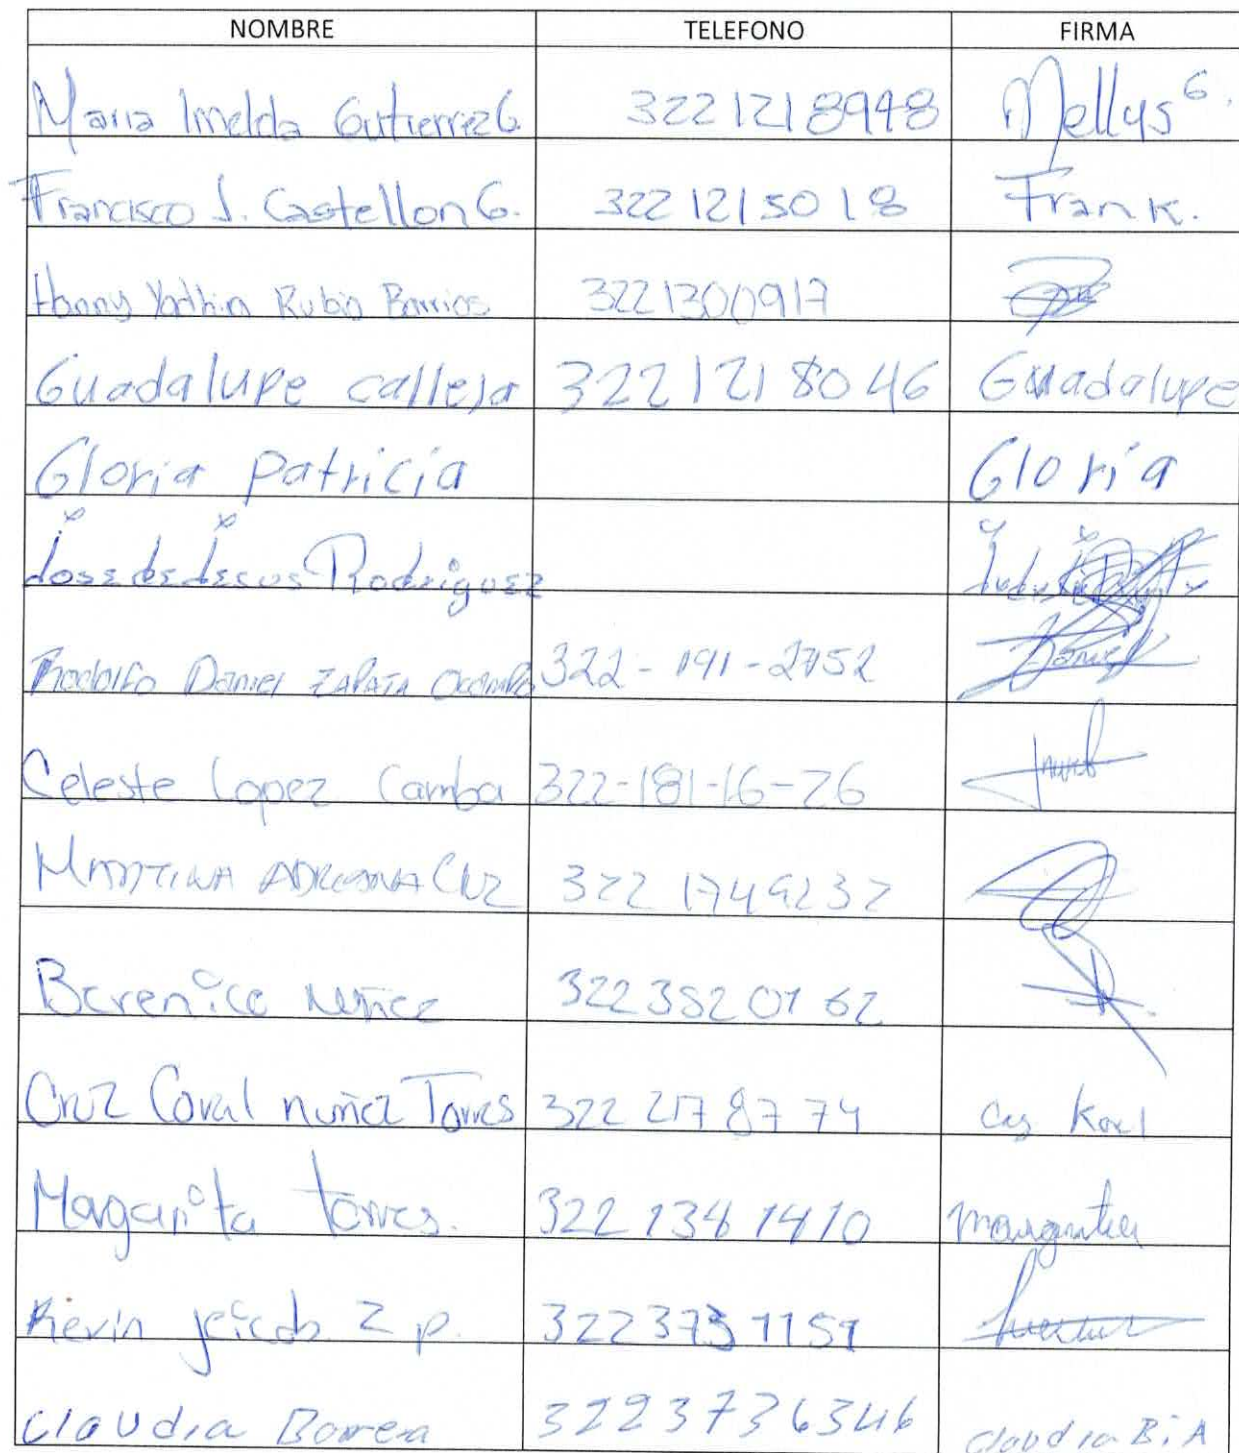 NOMBRE TELEFONO FIRMA
Maria Imelda Gutierrez G. 3221218948 Mellys G.
Francisco J. Castellon G. 322 1215018 Frank.
Hanny Rubio Barrios 3221300917
Guadalupe calleja 322 121 8046 Guadalupe
Gloria patricia Gloria
Jose de Jesus Rodriguez
Rodolfo Daniel ZAPATA Ocampo 322-191-2752 Daniel
Celeste Lopez Camba 322-181-16-26
MARTINA ADRIANA CRUZ 322 1749232
Berenice Nuñez 322 352 01 62
Cruz Coral nuñez Torres 322 217 87 74 Cruz Koral
Margarita torres. 322 134 1410 margarita
Kevin jacob Z p. 322 373 1151
Claudia Borrea 322 37 36346 Claudia B.A